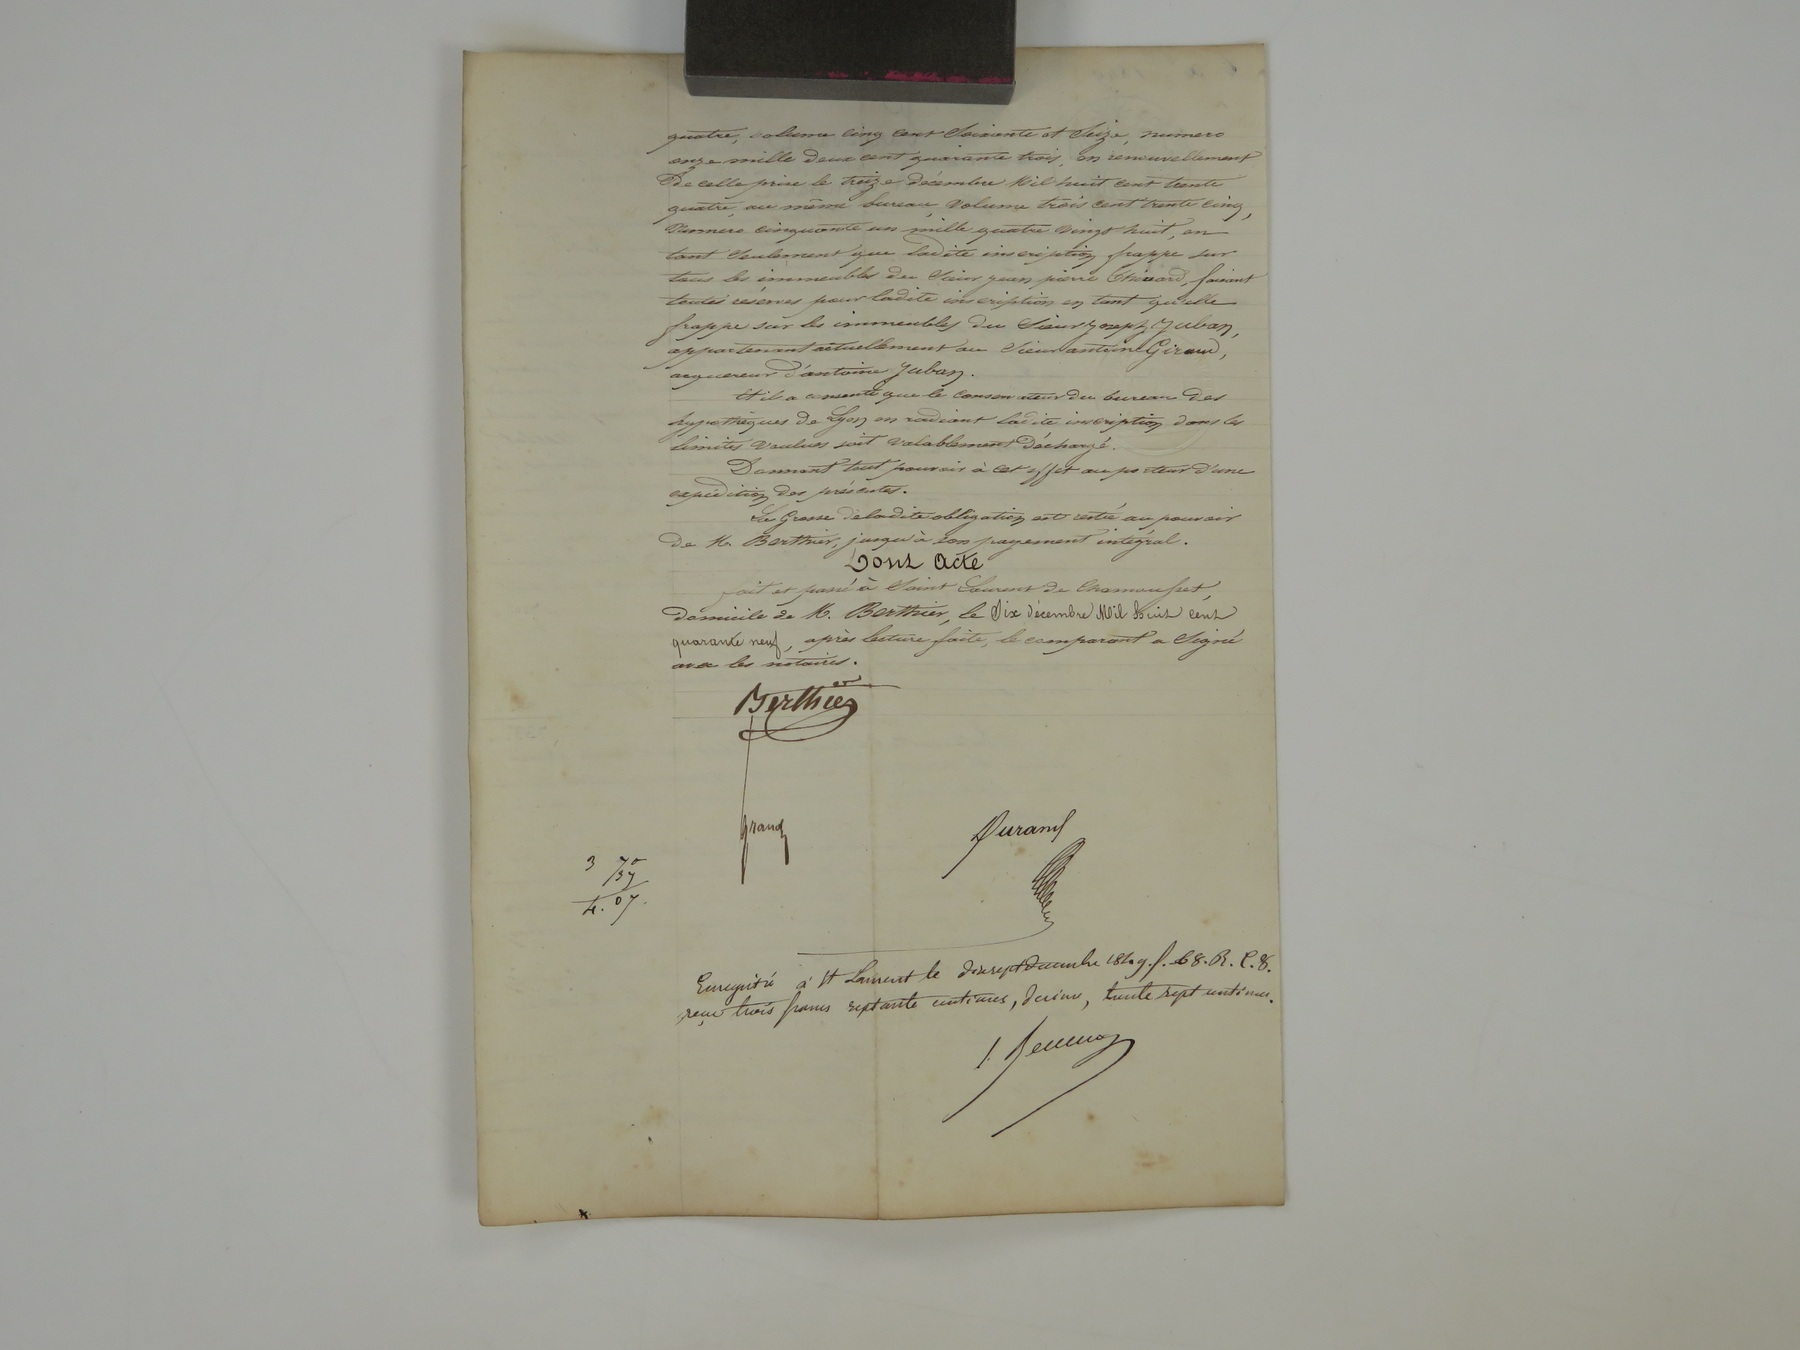 quatre, volume cinq cent Soixante et Seize, numero
onze mille deux cent quarante trois, en renouvellement
De celle prise le treize décembre Mil huit cent trente
quatre, au même bureau, volume trois cent trente cinq,
Numero cinquante un mille quatre vingt huit, en
tant Seulement que ladite inscription frappe sur
tous les immeubles du Sieur jean pierre faisant
toutes réserves pour ladite inscription en tant qu'elle
frappe sur les immeubles du Sieur joseph Juban,
appartenant actuellement au Sieur antoine Giraud,
acquereur d'antoine Juban.
Et il a consenti que le conservateur du bureau des
hypothèques de Lyon en radiant ladite inscription dans les
limites voulues soit valablement déchargé.
Donnant tout pouvoir à cet effet au porteur d'une
expédition des présentes.
La Grosse de ladite obligation est restée au pouvoir
de M. Berthier, jusqu'à son payement intégral.
Dont Acte
fait et passé à Saint Laurent de Chamousset,
domicile de M. Berthier, le Dix décembre Mil huit cent
quarante neuf, après lecture faite, le comparant a Signé
avec les notaires.
Berthier
grand
Durand
3 70
37
4. 07.
Enregistré à St Laurent le dix sept Décembre 1849. f. 68. R. C. 8.
reçu trois francs septante centimes, decime, trente sept centimes.